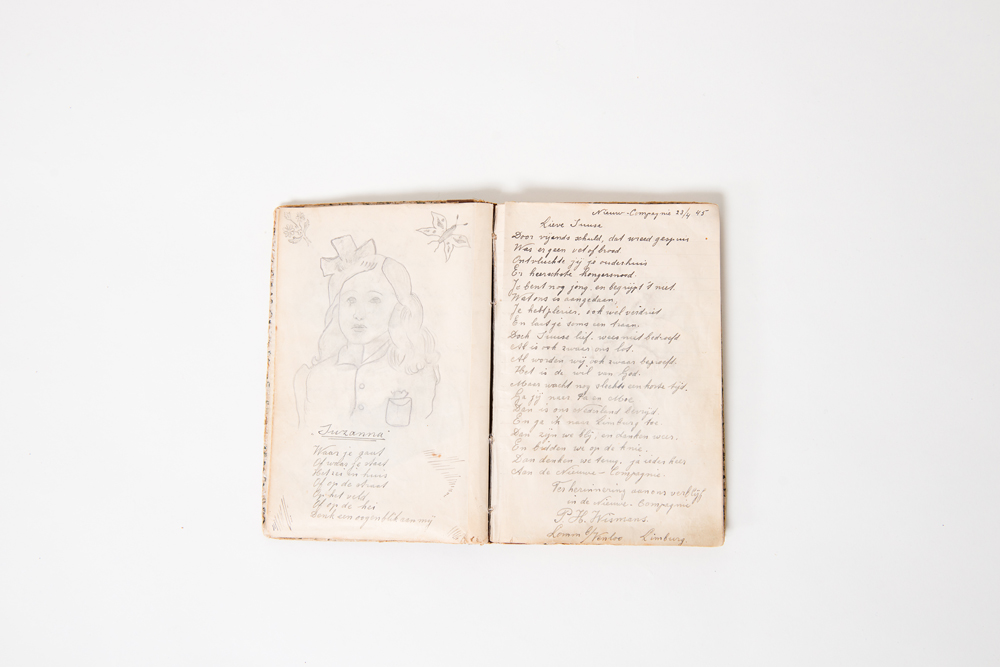 Suzanna
Waar je gaat
Of waar je staat
Het zij in huis
Of op de straat
Op het veld,
Of op de hei
Denk een oogenblik aan mij
Nieuw-Compagnie 23/4 45
Lieve Suuse
Door vyands schuld, dat wreed gespuis
Was er geen vet of brood.
Ontvluchte jij je ouderhuis
Er heerschote hongersnood.
Je bent nog jong, en begrijpt 't niet.
Wat ons is aangedaan,
Je hebt plezier, ook wel verdriet
En laat je soms een traan,
Doch Suuse lief, wees niet bedroeft
Al is ook zwaar ons lot.
Al worden wij ook zwaar beproeft.
Het is de wil van God.
Maar wacht nog slechts een korte tijd.
Ga jij naar Pa en Moe
Dan is ons Nederland bevrijd.
En ga ik naar Limburg toe.
Dan zijn we blij, en danken weer.
En bidden we op de knie,
Dan denken we terug, ja ieder keer
Aan de Nieuwe-Compagnie.
Ter herinnering aan ons verblijf
in de Nieuwe-Compagnie
P. H. Wismans.
Lomm b/Venloo Limburg